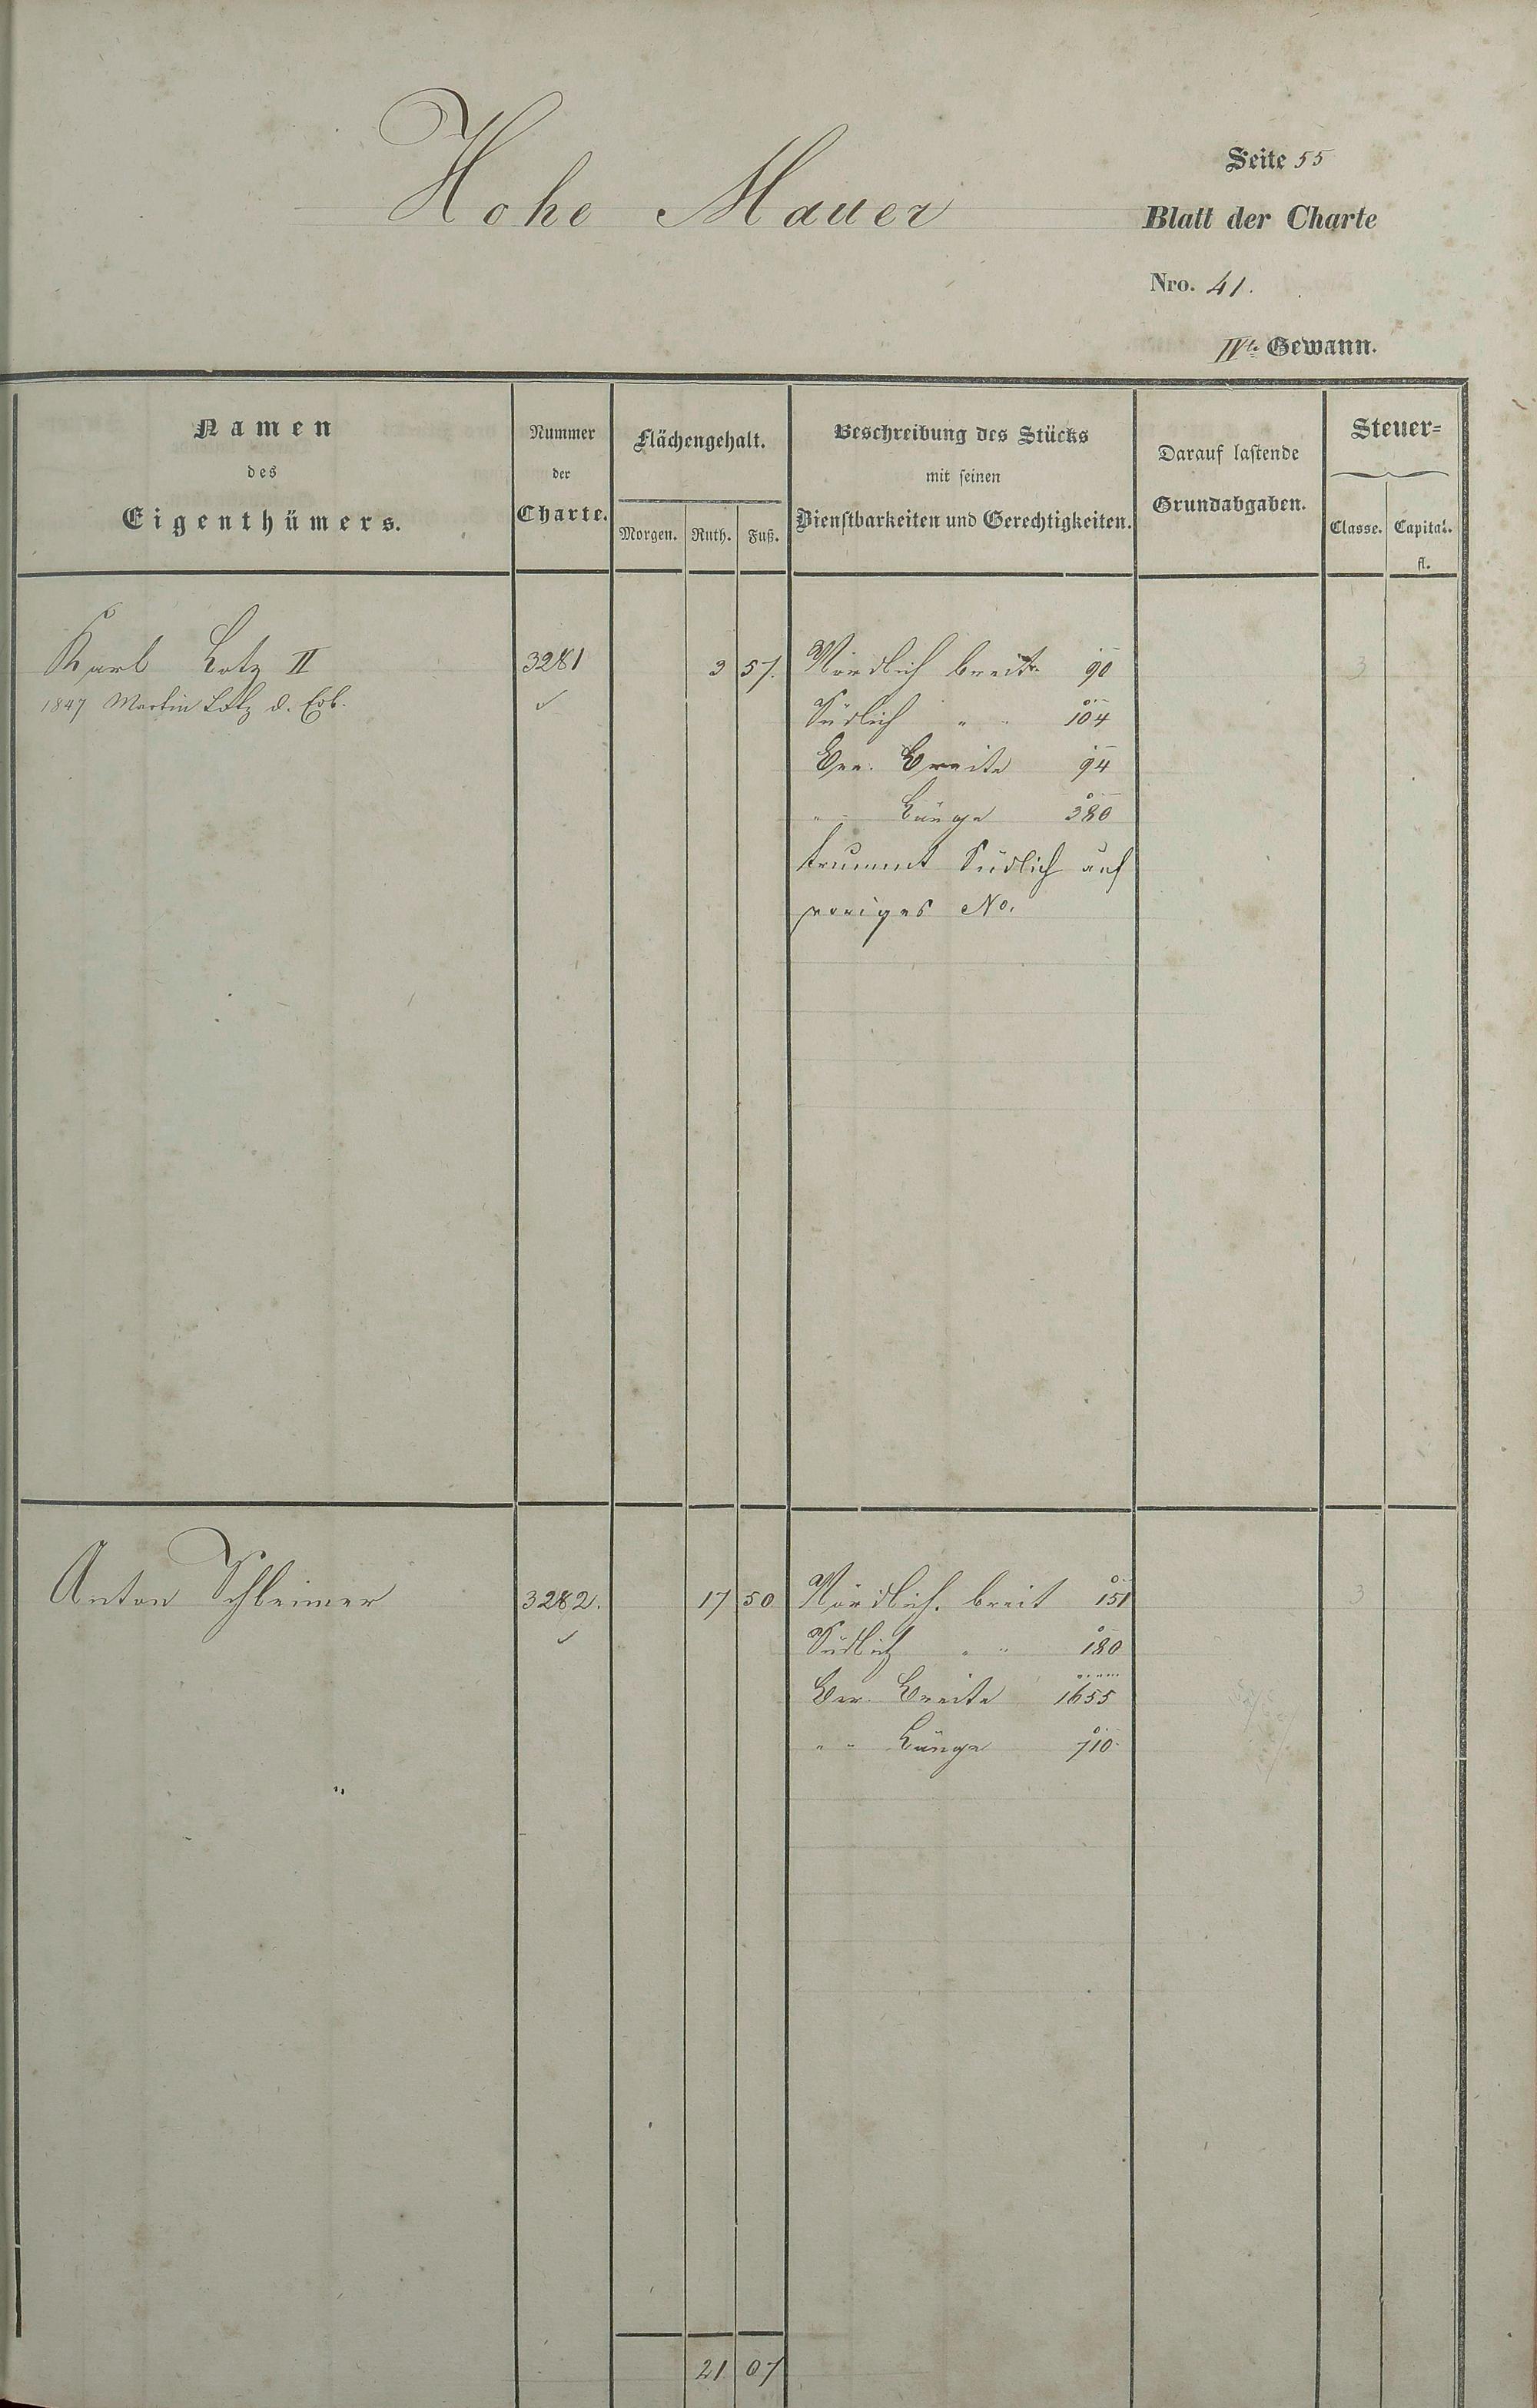 Hohe Mauer
Seite 55
Blatt der Charte
Nro. 41.
IVte Gewann.
Namen
des
Eigenthümers.
Nummer
der
Charte.
Flächengehalt.
Morgen. Ruth. Fuß.
Beschreibung des Stücks
mit seinen
Dienstbarkeiten und Gerechtigkeiten.
Darauf lastende
Grundabgaben.
Steuer=
Classe. Capital.
fl.
Karl Lotz II 3281 3 57. Nördlich breit 90 3
1847 Martin Lotz d. Erb. ✓ Südlich " " 104
Ver. Breite 94
" " Länge 380
trummt Südlich auf
voriges No.
Anton Schleimer 3282. 17 50 Nördlich. breit 151 3
✓ Südlich " " 180
Ver. Breite 1655
" " Länge 710
21 07